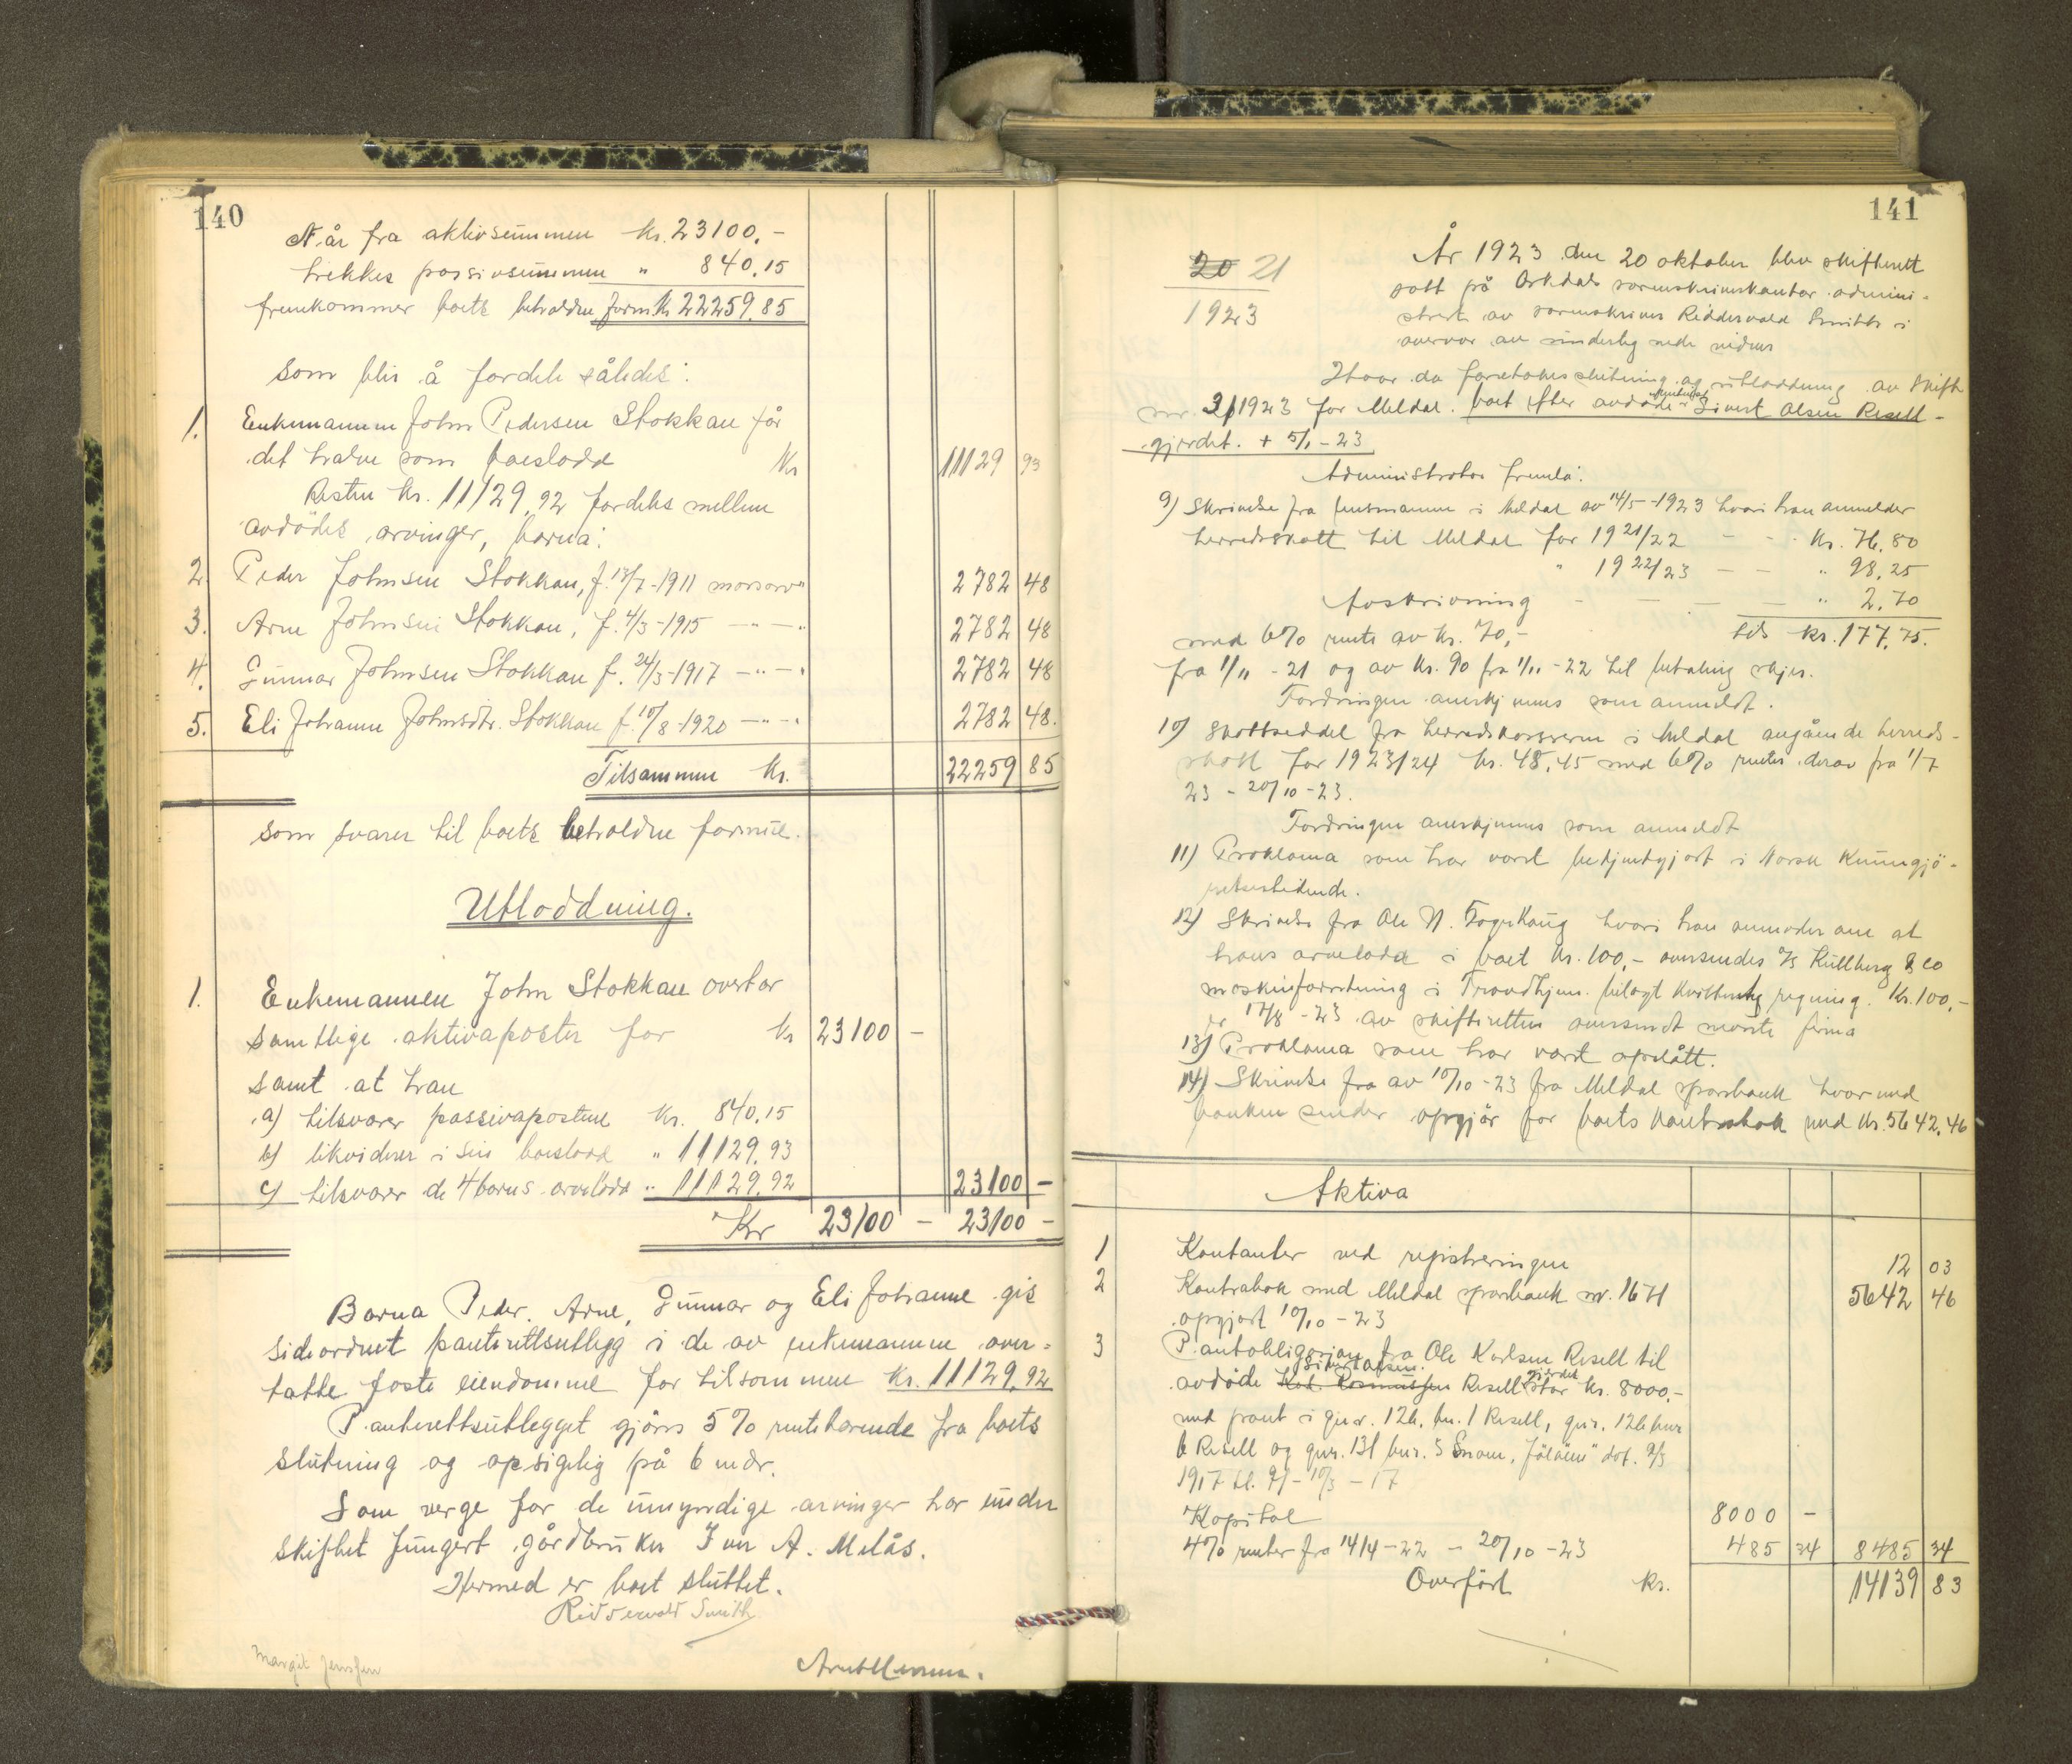 140
Når fra aktivsummen kr. 23100.-
trekkes passivsummen " 840.15
fremkommer boets beholdne form. kr 22259.85
som blir å fordele således:
1. Enkemannen John Pedersen Stokkan får
det halve som boeslodd Kr 11129 93
Resten kr. 11129,92 fordeles mellem
avdödes arvinger, barna:
2. Peder Johnsen Stokkan, f. 13/7-1911 morsarv 2782 48
3. Arne Johnsen Stokkan, f. 4/3-1915 -"- 2782 48
4. Gunnar Johnsen Stokkan f. 24/3-1917 -"- 2782 48
5. Eli Johanne Johnsdtr. Stokkan f. 10/8-1920 -"- 2782 48.
Tilsammen Kr. 22259 85
som svarer til boets beholdne formue.
Utloddning.
1. Enkemannen John Stokkan overtar
samtlige aktivaposter for kr 23100 -
samt at han
a) tilsvarer passivapostene Kr. 840,15
b) likviderer i sin boeslodd " 11129.93
c) tilsvarer de 4 barns arvelodd " 11129.92 23100 -
Kr 23100 - 23100 -
Barna Peder, Arne, Gunnar og Eli Johanne gis
sideordnet panterettsutlegg i de av enkemannen over=
tatte faste eiendomme for tilsammen kr. 11129.92
Panterettsutlegget gjöres 5% rentebærende fra boets
slutning og opsigelig på 6 mdr.
Som verge for de umyndige arvinger har under
skiftet fungert gårdbruker Iver A. Melås.
Hermed er boet sluttet.
Ridderwold Smith
Margit Jenssen
141
20 21
1923
År 1923 den 20 oktober blev skifterett
satt på Orkdals sorenskriverkontor admini-
strert av sorenskriver Ridderwold Smith i
overvær av underteg nede vidner
Hvor da foretokes slutning og utloddning av skifte
nr. 31/1923 for Meldal. boet efter avdöde Sivert Olsen Resell-
gjerdet. + 5/1-23
Administrator fremla:
9) Skrivelse fra lensmannen i Meldal av 14/5-1923 hvori han anmelder
herredsskatt til Meldal for 1921/22 - - kr. 76.80
" 1922/23 - - " 98,25
Avskrivning - - - - " 2.70
med 6% rente av kr. 70,- tils kr. 177.75.
fra 1/11-21 og av kr. 90 fra 1/11-22 til betaling skjer.
Fordringen anerkjennes som anmeldt.
10) Skattseddel fra herredskassereren i Meldal angående herreds-
skatt for 1923/24 kr. 48,15 med 6% renter derav fra 1/7
23 - 20/10-23.
Fordringen anerkjennes som anmeldt
11) Proklama som har vært bekjentgjort i Norsk Kunngjö-
relsestidende.
12) Skrivelse fra Ole N. Fagerhaug hvori han anmoder om at
hans arvelodd i boet kr. 100,- oversendes A/S Kullberg & co
maskinforretning i Trondhjem. bilagt kvittert regning. Kr. 100,-
er 17/8-23 av skifteretten oversendt nevnte firma
13) Proklama som har vært opslått.
14) Skrivelse fra av 10/10-23 fra Meldal sparebank hvor med
banken sender opgjör for boets kontrabok med kr. 5642.46
Aktiva
1 Kontanter ved registreringen 12 03
2 Kontrabok med Meldal sparebank nr. 1671 5642 46
opgjort 10/10-23
3 Pantobligasjon fra Ole Karlsen Resell til
avdöde Sivert Olsen Resell gjerdet stor kr. 8000.-
med pant i gnr. 126. bnr. 1 Resell, gnr. 126 bnr
6 Resell og gnr. 131 bnr. 5 dat. 9/3
1917 tl. 9/- 10/3-17
Kapital 8000 -
4% renter fra 14/4-22 - 20/10-23 485 34 8485 34
Overfört kr. 14139 83